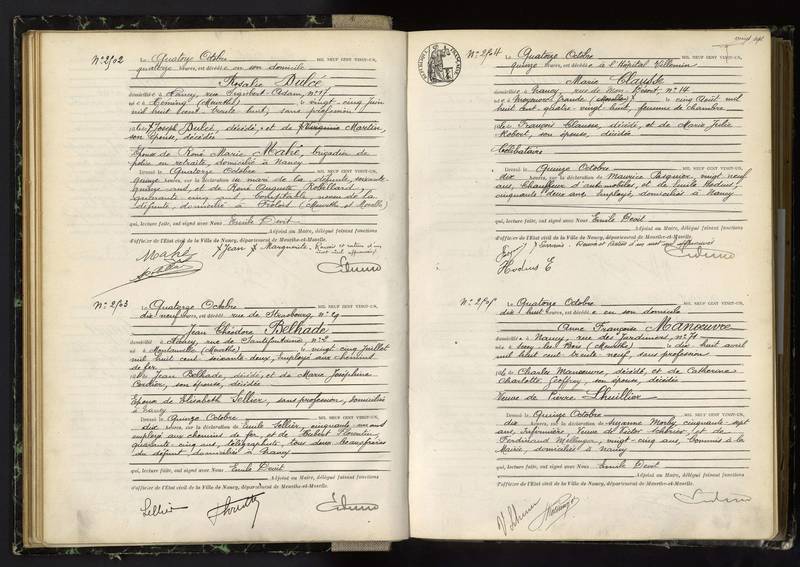 N° 2102
Le Quatorze Octobre MIL NEUF CENT VINGT-UN,
quatorze heures, est décédée en son domicile
Rosalie Dulcé
domiciliée à Nancy, rue Sigisbert-Adam, n° 17
née à Heming (Meurthe) le vingt-cinq juin
mil huit cent trente huit, sans profession
fille de Joseph Dulcé, décédé, et de Virginie Martin,
son épouse, décédée
Epouse de René Marie Mahé, brigadier de
police en retraite, domicilié à Nancy
Dressé le Quatorze Octobre MIL NEUF CENT VINGT-UN,
quinze heures, sur la déclaration du mari de la défunte, soixante
quinze ans, et de René Auguste Robillard,
quarante cinq ans, comptable, neveu de la
défunte, domicilié à Frolois (Meurthe et Moselle)
qui, lecture faite, ont signé avec Nous Emile Devit
Adjoint au Maire, délégué faisant fonctions
d'officier de l'Etat civil de la Ville de Nancy, département de Meurthe-et-Moselle.
Jean Marguerite. Renvoi et rature d'un
mot nul approuvés
Mahé
N° 2103
Le Quatorze Octobre MIL NEUF CENT VINGT-UN,
dix neuf heures, est décédé rue de Strasbourg, n° 29
Jean Théodore Belhade
domicilié à Nancy, rue de Santifontaine, n° 2
né à (Meurthe) le vingt cinq juillet
mil huit cent soixante deux, employé aux chemins
de fer
fils de Jean Belhade, décédé, et de Marie Joséphine
Cordier, son épouse, décédée
Epoux de Elisabeth Sellier, sans profession, domiciliée
à Nancy
Dressé le Quinze Octobre MIL NEUF CENT VINGT-UN,
dix heures, sur la déclaration de Emile Sellier, cinquante un ans
employé aux chemins de fer, et de Hubert Florentin,
quarante cinq ans, télégraphiste, tous deux beaux-frères
du défunt, domiciliés à Nancy
qui, lecture faite, ont signé avec Nous Emile Devit
Adjoint au Maire, délégué faisant fonctions
d'officier de l'Etat civil de la Ville de Nancy, département de Meurthe-et-Moselle.
Sellier
N° 2104
Le Quatorze Octobre MIL NEUF CENT VINGT-UN,
quinze heures, est décédée à l'Hôpital Villemin
Marie Clausse
domiciliée à Nancy, rue de Mon-Désert n° 14
née à Moyeuvre Grande (Moselle) le cinq Août mil
huit cent quatre vingt huit, femme de chambre
fille de François Clausse, décédé, et de Marie Julie
Robert, son épouse, décédée
Célibataire
Dressé le Quinze Octobre MIL NEUF CENT VINGT-UN,
dix heures, sur la déclaration de Maurice Pasquier, vingt neuf
ans, Chauffeur d'automobiles, et de Emile Hodus,
cinquante deux ans, employé, domiciliés à Nancy
qui, lecture faite, ont signé avec Nous Emile Devit
Adjoint au Maire, délégué faisant fonctions
d'officier de l'Etat civil de la Ville de Nancy, département de Meurthe-et-Moselle.
Renvoi et rature d'un mot nul approuvés
Hodus E
N° 2105
Le Quatorze Octobre MIL NEUF CENT VINGT-UN,
dix huit heures, est décédée en son domicile
Anne Françoise Manoeuvre
domiciliée à Nancy, rue des Jardiniers, n° 71
née à (Meurthe) le dix huit avril
mil huit cent trente neuf, sans profession
fille de Charles Manoeuvre, décédé, et de Catherine
Charlotte Geoffroy, son épouse, décédée
Veuve de Pierre Lhuillier
Dressé le Quinze Octobre MIL NEUF CENT VINGT-UN,
dix heures, sur la déclaration de Suzanne Morby, cinquante sept
ans, infirmière, veuve de Victor et de
Ferdinand Mellinger, vingt-cinq ans, Commis à la
Mairie, domiciliés à Nancy
qui, lecture faite, ont signé avec Nous Emile Devit
Adjoint au Maire, délégué faisant fonctions
d'officier de l'Etat civil de la Ville de Nancy, département de Meurthe-et-Moselle.